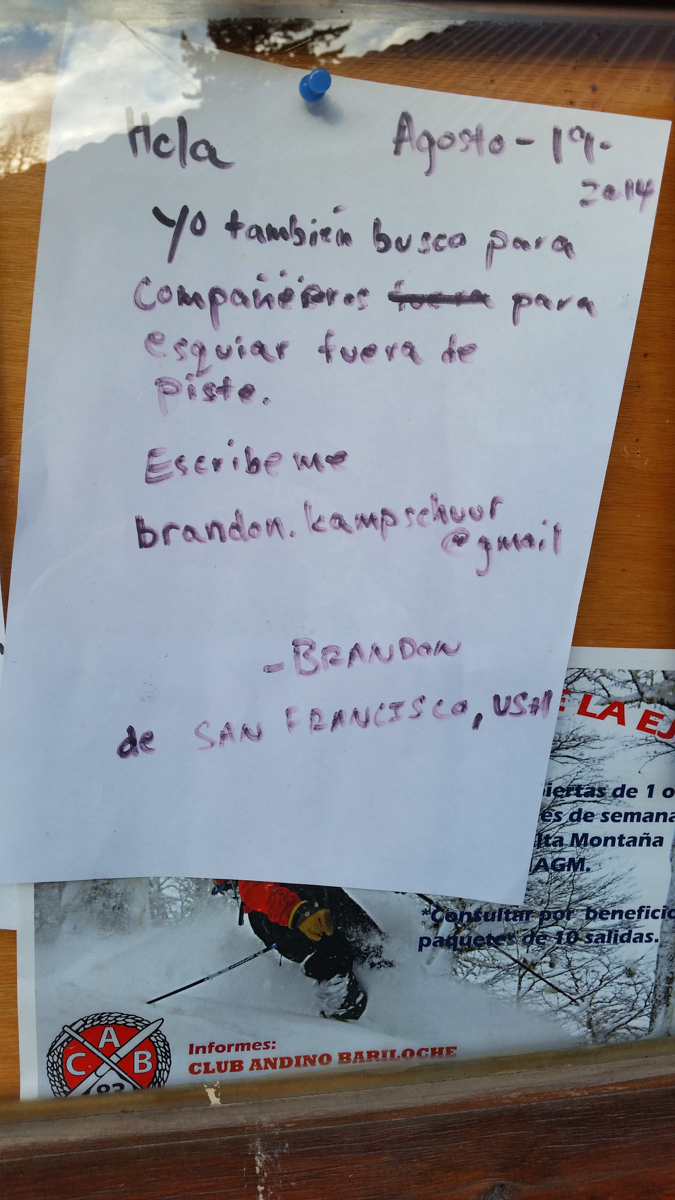 Hola Agosto - 19 -
2014
Yo también busco para
compañeros fuera para
esquiar fuera de
piste.
Escribeme
brandon.kampschuur
@gmail
- BRANDON
de SAN FRANCISCO, USA
E LA EJ
iertas de 1 o
es de semana
lta Montaña
AGM.
*Consultar por beneficio
paquetes de 10 salidas.
C A B
Informes:
CLUB ANDINO BARILOCHE